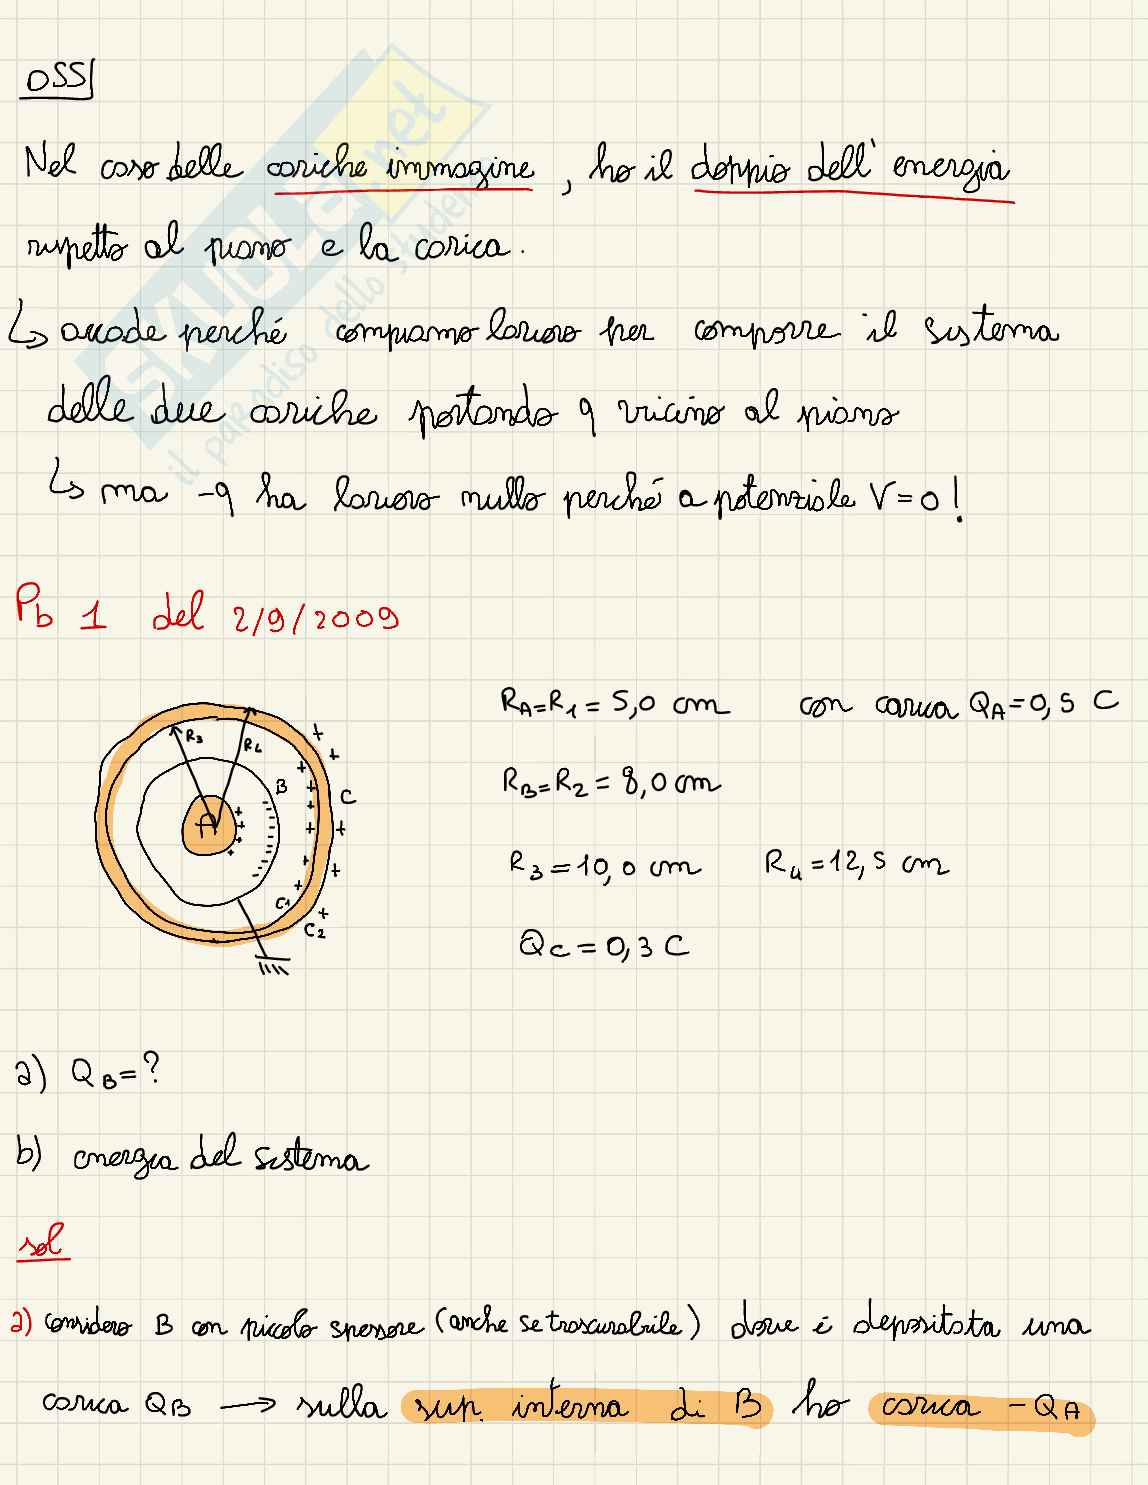 OSS
Nel caso delle cariche immagine, ho il doppio dell'energia
rispetto al piano e la carica.
↳ accade perché compiamo lavoro per comporre il sistema
delle due cariche portando q vicino al piano
↳ ma -q ha lavoro nullo perché a potenziale V=0!
Pb 1 del 2/9/2009
R_A=R_1=5,0 cm con carica Q_A=0,5 C
R_B=R_2=8,0 cm
R_3=10,0 cm R_4=12,5 cm
Q_C=0,3 C
R_3 R_4
B
C
A
C_1
C_2
a) Q_B=?
b) energia del sistema
sol
a) considero B con piccolo spessore (anche se trascurabile) dove è depositata una
carica Q_B → sulla sup. interna di B ho carica -Q_A
SKUOLA.net
il paradiso dello studente